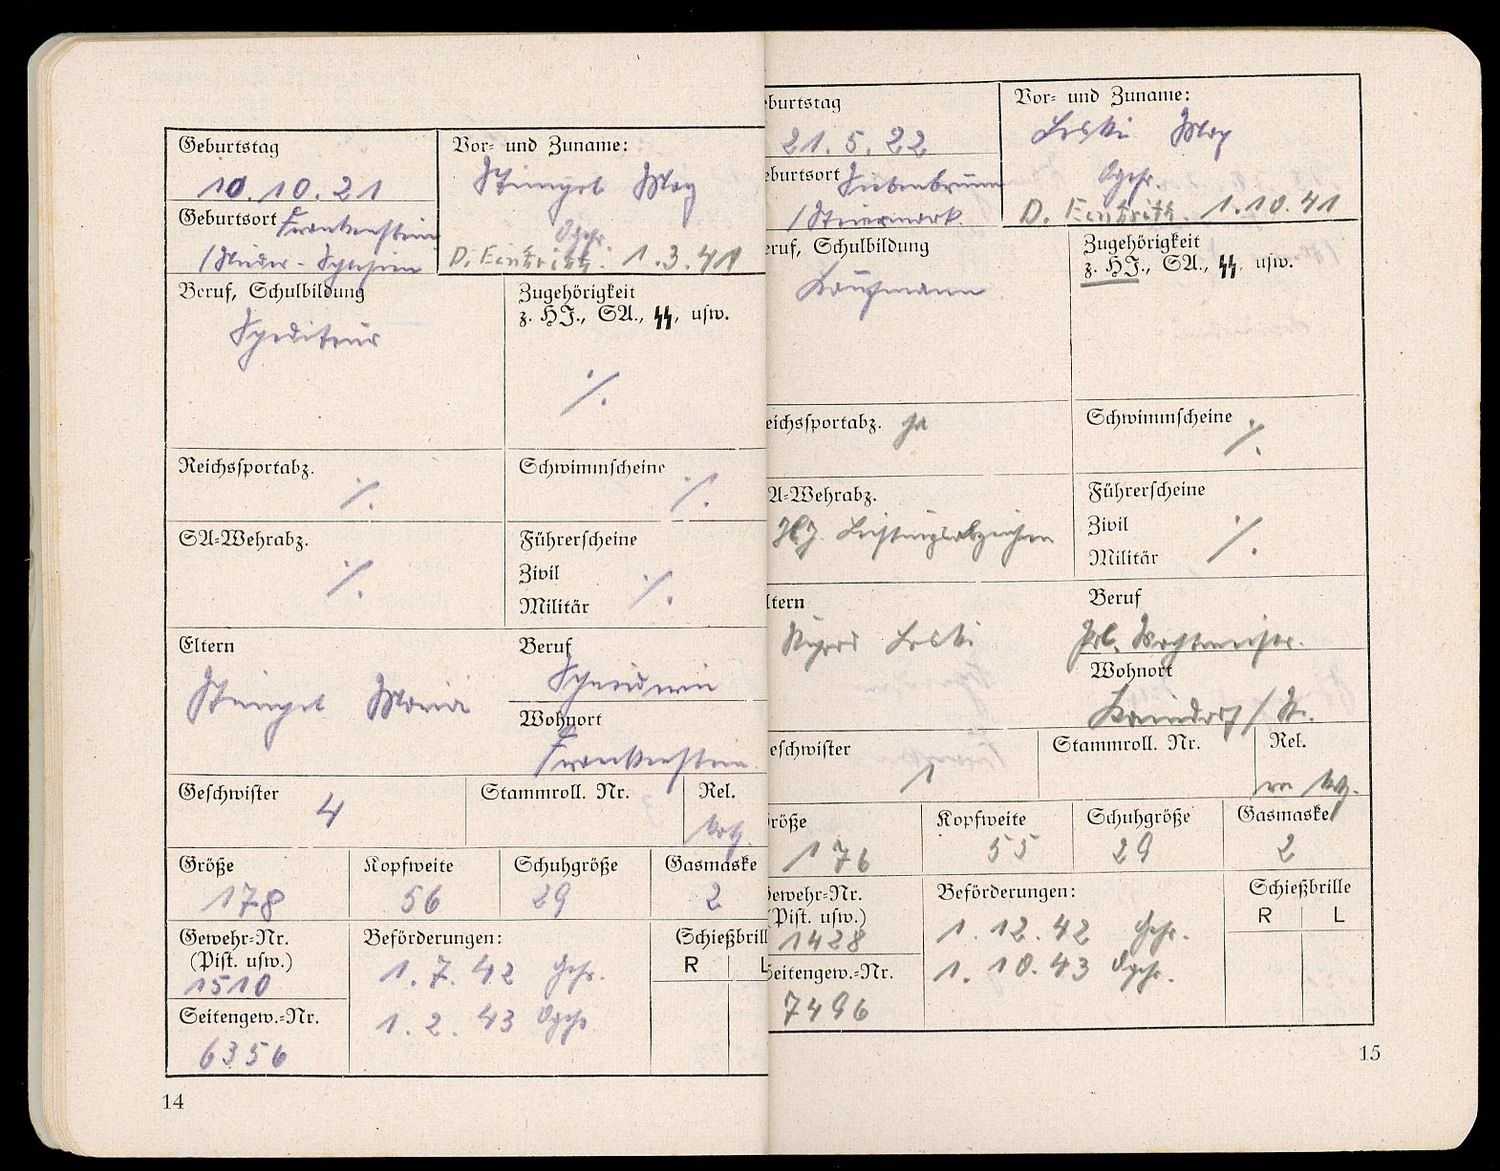 Geburtstag
10.10.21
Geburtsort Frankenstein
/Nieder-Schlesien
Vor- und Zuname:
Stengel Max
Ogefr.
D. Eintritt. 1.3.41
Beruf, Schulbildung
Spediteur
Zugehörigkeit
z. HJ., SA., SS, usw.
·/.
Reichssportabz.
·/.
Schwimmscheine
·/.
SA-Wehrabz.
·/.
Führerscheine
Zivil
Militär ·/.
Eltern
Maria
Beruf
Schneiderin
Wohnort
Frankenstein
Geschwister 4
Stammroll. Nr.
Rel.
kath.
Größe
178
Kopfweite
56
Schuhgröße
29
Gasmaske
2
Gewehr-Nr.
(Pist. usw.)
1510
Seitengew.-Nr.
6356
Beförderungen:
1.7.42 Gefr.
1.2.43 Ogefr.
Schießbrill
R L
14
eburtstag
21.5.22
eburtsort
/Steiermark.
Vor- und Zuname:
Max
Ogefr.
D. Eintritt. 1.10.41
eruf, Schulbildung
Kaufmann
Zugehörigkeit
z. HJ., SA., SS, usw.
eichssportabz. ja
Schwimmscheine ·/.
A-Wehrabz.
H.J. Leistungsabzeichen
Führerscheine
Zivil ·/.
Militär
ltern
Beruf
Wachtmeister.
Wohnort
Kaindorf / St.
eschwister
1
Stammroll. Nr.
Rel.
kath.
röße
176
Kopfweite
55
Schuhgröße
29
Gasmaske
2
ewehr-Nr.
(Pist. usw.)
1428
Seitengew.-Nr.
7496
Beförderungen:
1.12.42 Gefr.
1.10.43 Ogefr.
Schießbrille
R L
15